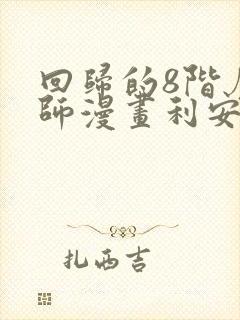 回歸的8階
師漫畫利安
扎西吉